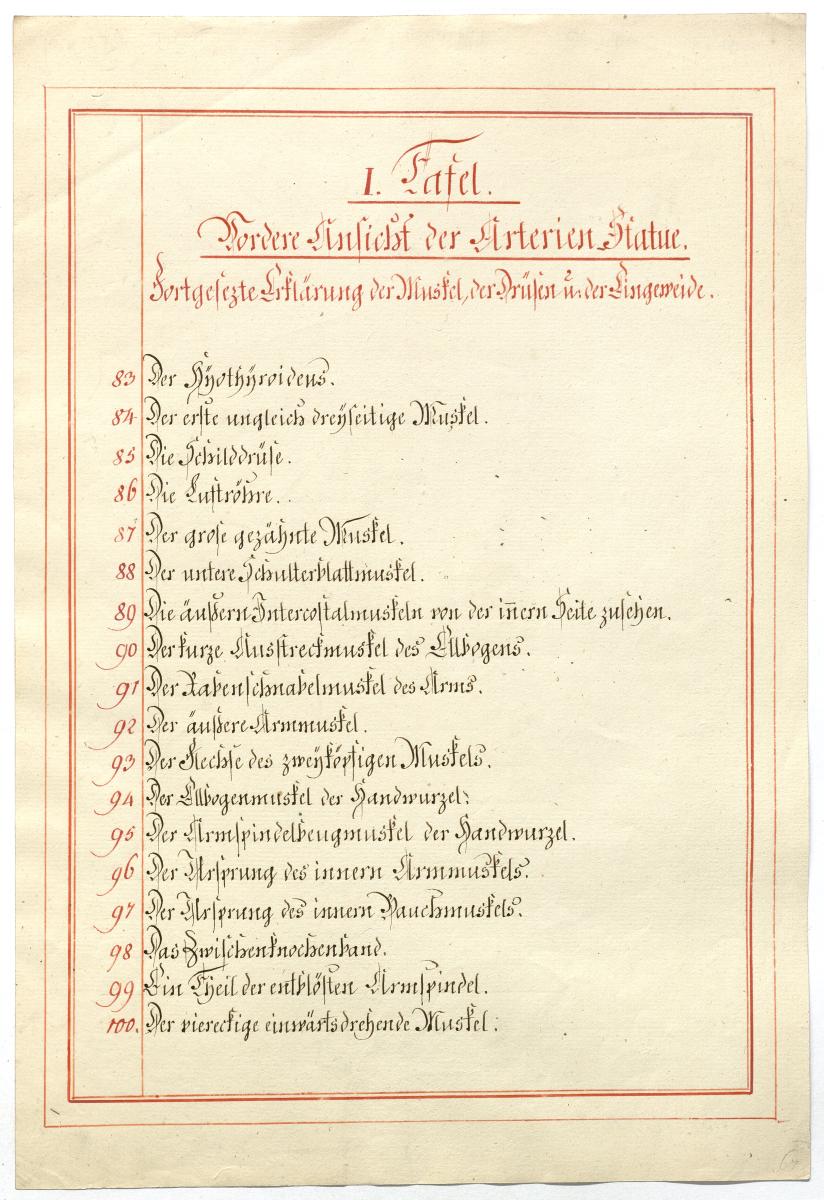 I. Tafel.
Vordere Ansicht der Arterien-Statue.
Fortgesezte Erklärung der Muskel, der Drüsen u. der Eingeweide.
83 Der Hÿothÿroidens.
84 Der erste ungleich dreÿseitige Muskel.
85 Die Schilddrüse.
86 Die Luftröhre.
87 Der grose gezähnte Muskel.
88 Der untere Schulterblattmuskel.
89 Die äußern Intercostalmuskeln von der iñern Seite zusehen.
90 Der kurze Ausstreckmuskel des Ellbogens.
91 Der Rabenschnabelmuskel des Arms.
92 Der äußere Armmuskel.
93 Der Flechse des zweÿköpfigen Muskels.
94 Der Ellbogenmuskel der Handwurzel.
95 Der Armspindelbeugmuskel der Handwurzel.
96 Der Ursprung des innern Armmuskels.
97 Der Ursprung des innern Bauchmuskels.
98 Das Zwischenknochenband.
99 Ein Theil der entblösten Armspindel.
100. Der viereckige einwärtsdrehende Muskel.